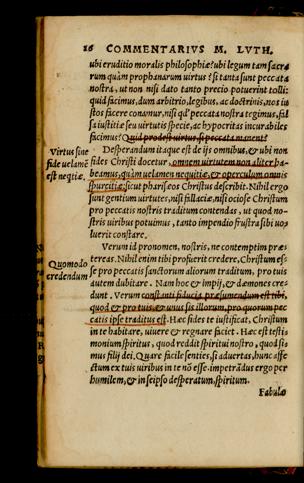 16 COMMENTARIVS M. LVTH.
ubi eruditio moralis philosophiæ? ubi legum tam sacra
rum quàm prophanarum uirtus? si tanta sunt peccata
nostra, ut non nisi dato tanto precio potuerint tolli:
quid facimus, dum arbitrio, legibus, ac doctrinis, nos iu
stos facere conamur, nisi qd' peccata nostra tegimus, fal
sa iustitiæ seu uirtutis specie, ac hypocritas incurabiles
facimus? Quid prodest uirtus, si peccata manent?
Desperandum itaque est de ijs omnibus, & ubi non
fides Christi docetur, omnem uirtutem non aliter ha-
beamus, quàm uelamen nequitiæ, & operculum omnis
spurcitiæ, sicut phariseos Christus describit. Nihil ergo
sunt gentium uirtutes, nisi fallaciæ, nisi ociose Christum
pro peccatis nostris traditum contendas, ut quod no-
stris uiribus potuimus, tanto impendio frustra sibi uo-
luerit constare.
Virtus sine
fide uelamē
est neqtiæ.
Verum id pronomen, nostris, ne contemptim præ-
tereas. Nihil enim tibi profuerit credere, Christum es-
se pro peccatis sanctorum aliorum traditum, pro tuis
autem dubitare. Nam hoc & impij, & dæmones cre-
dunt. Verum constanti fiducia præsumendum est tibi,
quod & pro tuis, & unus sis illorum, pro quorum pec-
catis ipse traditus est. Hæc fides te iustificat, Christum
in te habitare, uiuere & regnare faciet. Hæc est testi
monium spiritus, quod reddit spiritui nostro, quod si
mus filij dei. Quare facile senties, si aduertas, hunc affe
ctum ex tuis uiribus in te nō esse. impetrādus ergo per
humilem, & in seipso desperatum, spiritum.
Quomodo
credendum
Fabulæ